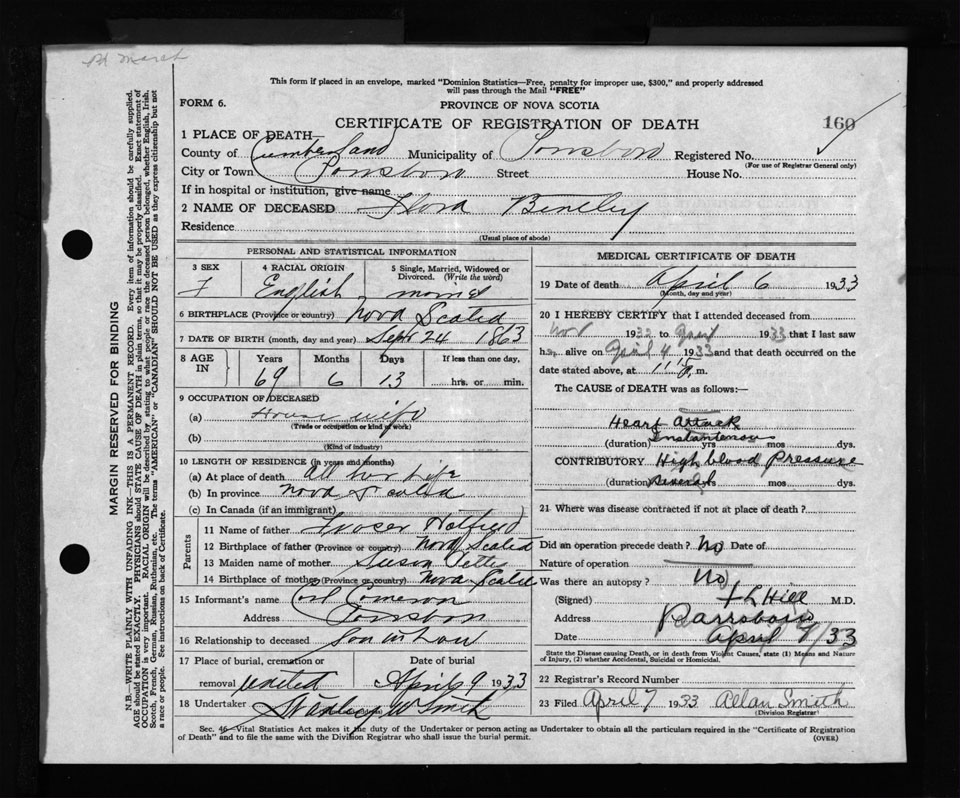 This form if placed in an envelope, marked "Dominion Statistics—Free, penalty for improper use, $300," and properly addressed
will pass through the Mail "FREE"
FORM 6.
PROVINCE OF NOVA SCOTIA
CERTIFICATE OF REGISTRATION OF DEATH
160
1 PLACE OF DEATH—
County of Cumberland Municipality of Registered No.
(For use of Registrar General only)
City or Town Street House No.
If in hospital or institution, give name
2 NAME OF DECEASED Flora
Residence
(Usual place of abode)
MARGIN RESERVED FOR BINDING
N.B.—WRITE PLAINLY WITH UNFADING INK—THIS IS A PERMANENT RECORD. Every item of information should be carefully supplied.
AGE should be stated EXACTLY. PHYSICIANS should STATE CAUSE OF DEATH in plain terms, so that it may be properly classified. Exact statement of
OCCUPATION is very important. RACIAL ORIGIN will be described by stating to what people or race the deceased person belonged, whether English, Irish,
Scotch, French, German, Russian, Ruthenian, etc. The terms "AMERICAN" or "CANADIAN" SHOULD NOT BE USED as they express citizenship but not
a race or people. See instructions on back of Certificate.
PERSONAL AND STATISTICAL INFORMATION
3 SEX 4 RACIAL ORIGIN 5 Single, Married, Widowed or
Divorced. (Write the word)
F English
6 BIRTHPLACE (Province or country) Nova Scotia
7 DATE OF BIRTH (month, day and year) Sept 24 1863
8 AGE IN Years Months Days If less than one day,
69 6 13 hrs. or min.
9 OCCUPATION OF DECEASED
(a) House wife
(Trade or occupation or kind of work)
(b)
(Kind of industry)
10 LENGTH OF RESIDENCE (in years and months)
(a) At place of death All her Life
(b) In province Nova Scotia
(c) In Canada (if an immigrant)
Parents
11 Name of father
12 Birthplace of father (Province or country) Nova Scotia
13 Maiden name of mother Susan
14 Birthplace of mother (Province or country) Nova Scotia
15 Informant's name Cameron
Address
16 Relationship to deceased Son in Law
17 Place of burial, cremation or Date of burial
removal United April 9 1933
18 Undertaker Stanley W Smith
MEDICAL CERTIFICATE OF DEATH
19 Date of death April 6 1933
(Month, day and year)
20 I HEREBY CERTIFY that I attended deceased from
Nov 1932 to April 1933 that I last saw
h alive on April 4 1933 and that death occurred on the
date stated above, at 11 m.
The CAUSE of DEATH was as follows:—
Heart Attack
(duration) Instantaneous yrs mos dys.
CONTRIBUTORY High blood Pressure
(duration) Several yrs mos dys.
21 Where was disease contracted if not at place of death?
Did an operation precede death? No Date of
Nature of operation
Was there an autopsy? No
(Signed) Hill M.D.
Address Parrsboro
Date April /33
State the Disease causing Death, or in death from Violent Causes, state (1) Means and Nature
of Injury, (2) whether Accidental, Suicidal or Homicidal.
22 Registrar's Record Number
23 Filed April 7 1933 Allan Smith
(Division Registrar)
Sec. 46—Vital Statistics Act makes it the duty of the Undertaker or person acting as Undertaker to obtain all the particulars required in the "Certificate of Registration
of Death" and to file the same with the Division Registrar who shall issue the burial permit. (OVER)